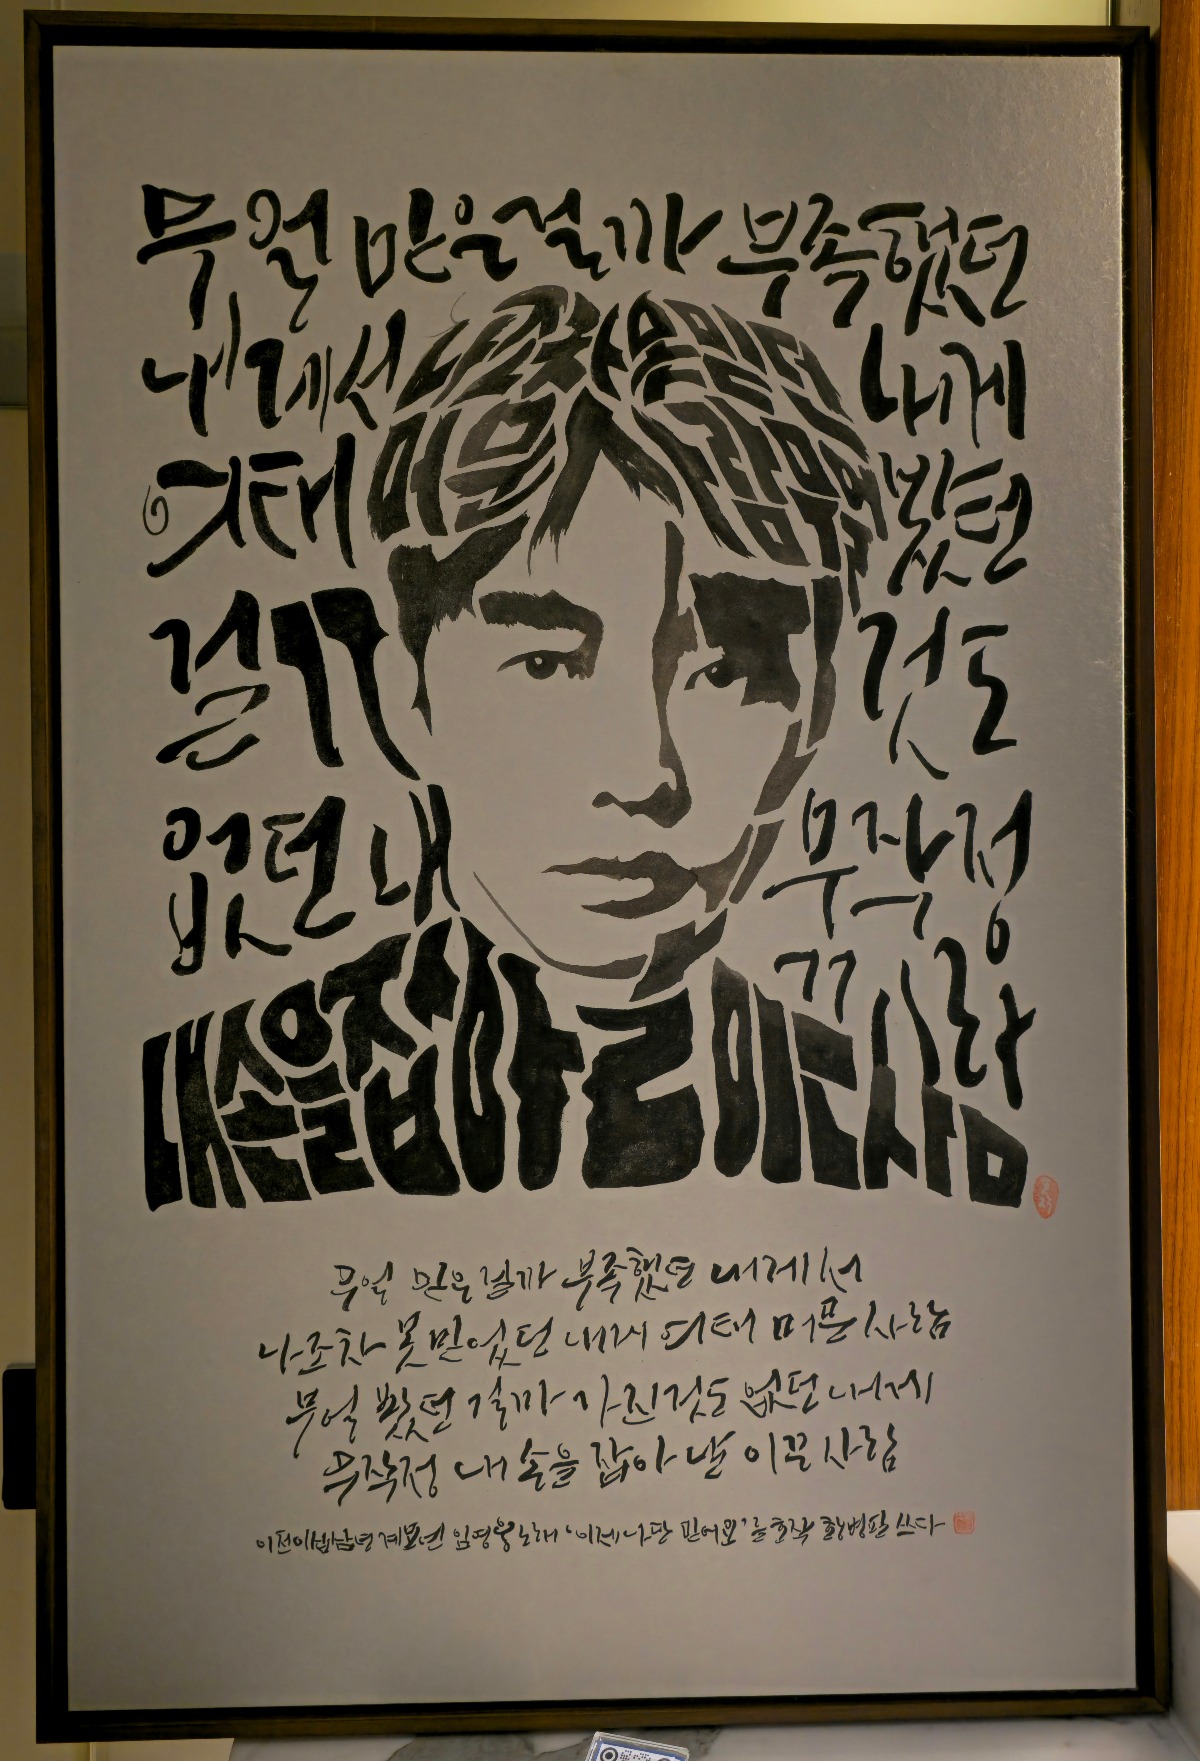 무얼 믿은걸까 부족했던
내게서 나조차 못믿던 내게
여태 머문 사람 무얼 봤던
걸까 것도
없던 내 무작정
내 손을 잡아 끈 사람
무얼 믿은걸까 부족했던 내게서
나조차 못 믿었던 내게 여태 머문 사람
무얼 봤던 걸까 가진것도 없던 내게
무작정 내 손을 잡아 날 이끈 사람
이천이십삼년 계묘년 임영웅노래 '이제 나만 믿어요'를 효작 황병필 쓰다